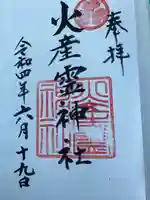 奉拝
火産霊神社
令和四年六月十九日